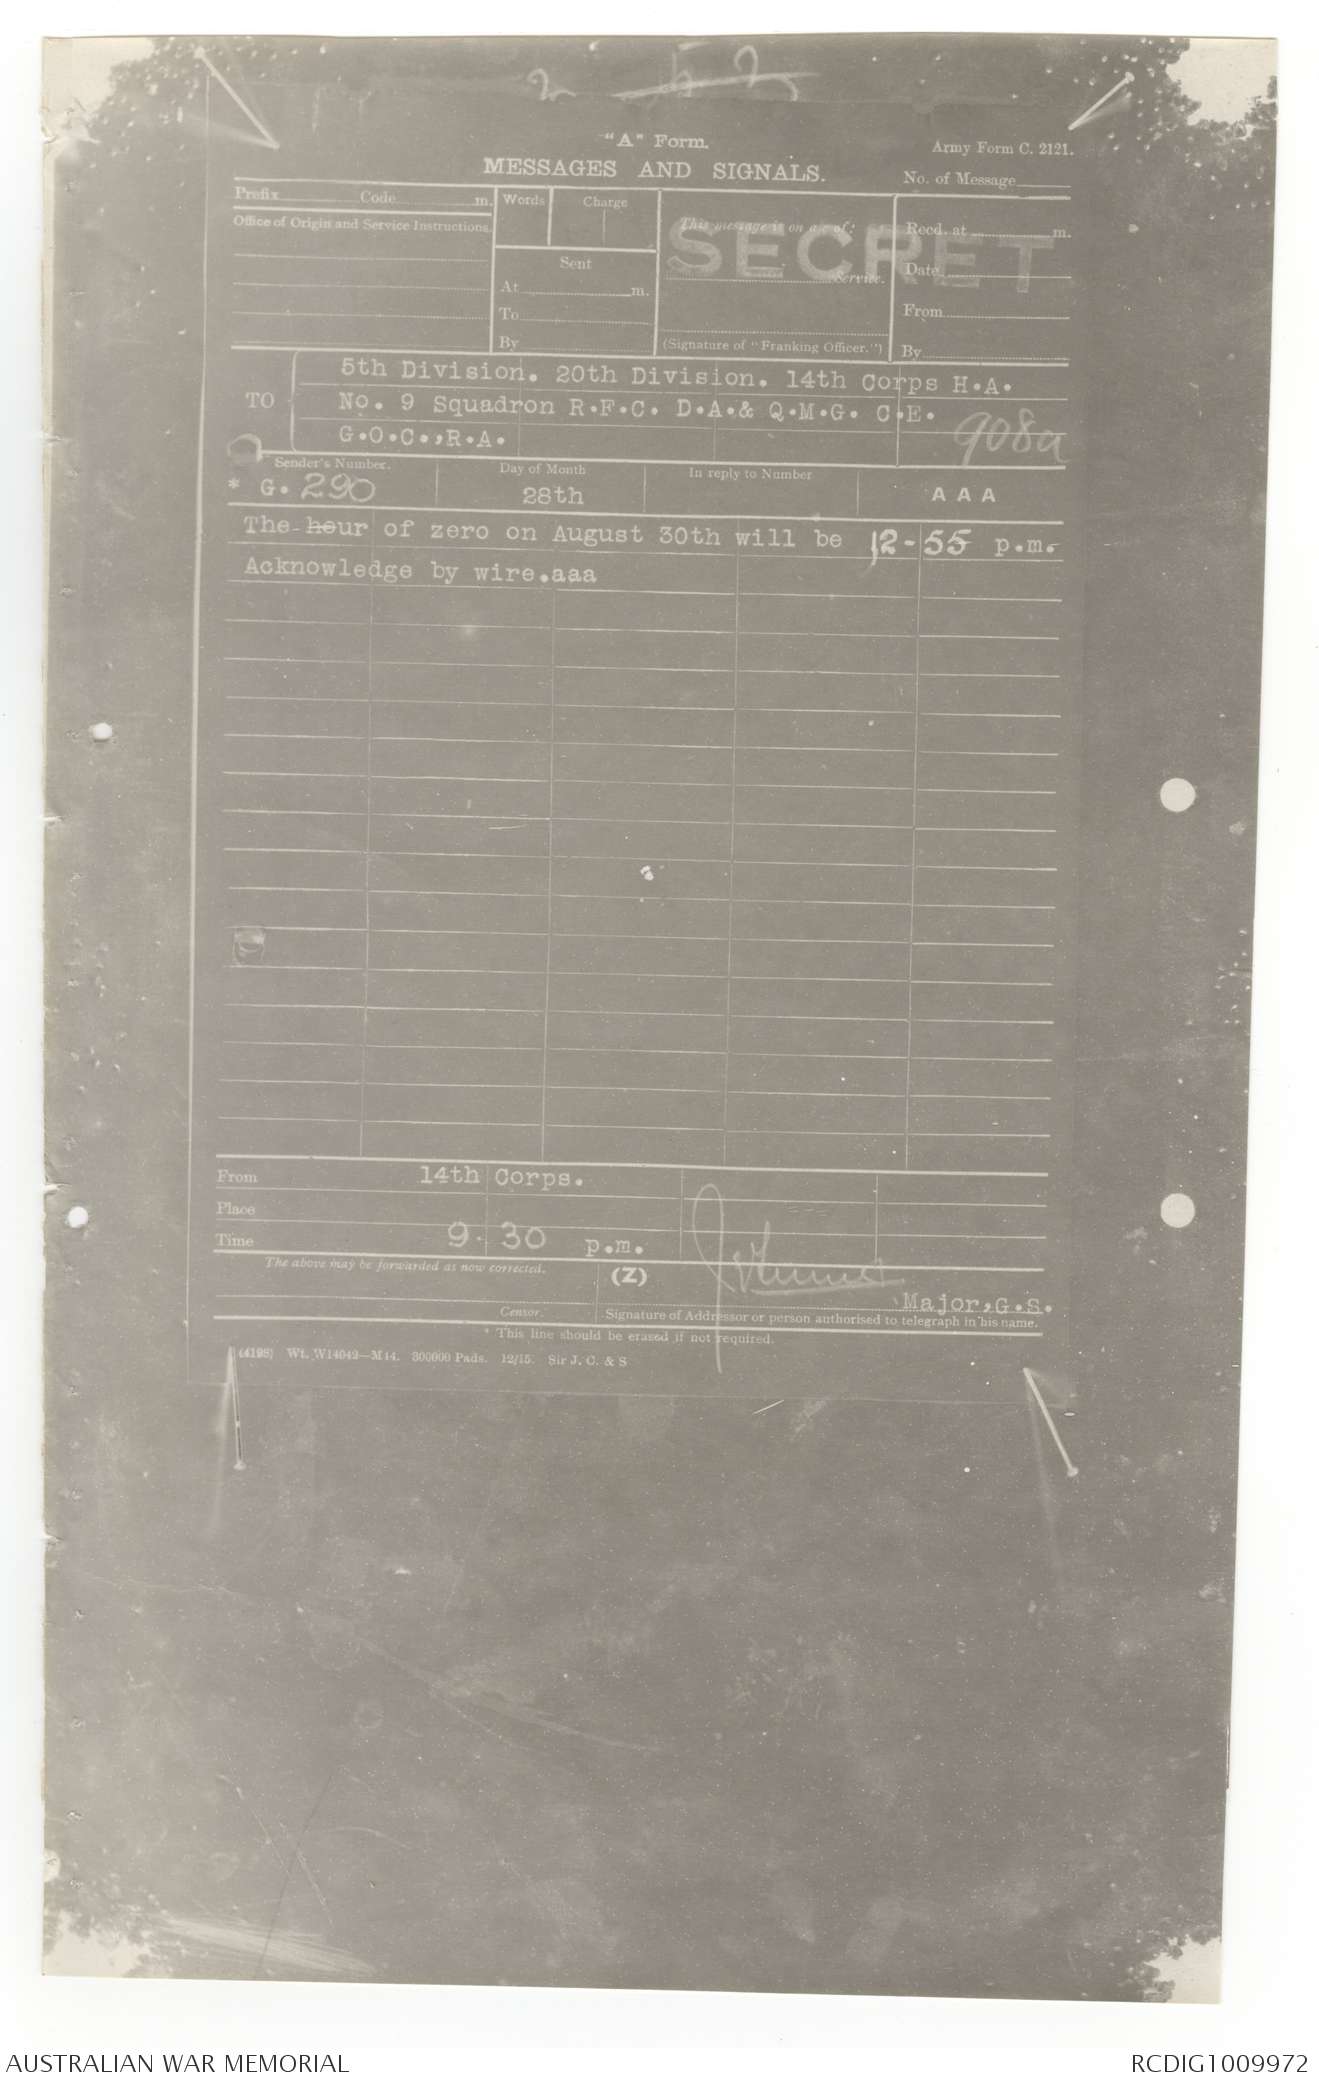 "A" Form.
Army Form C. 2121.
MESSAGES AND SIGNALS.
No. of Message
Prefix Code m.
Words Charge
This message is on a/c of:
Recd. at m.
Office of Origin and Service Instructions.
SECRET
Sent
Date
Service.
At m.
From
To
By
(Signature of "Franking Officer.")
By
TO
5th Division. 20th Division. 14th Corps H.A.
No. 9 Squadron R.F.C. D.A.& Q.M.G. C.E.
G.O.C.,R.A.
908a
Sender's Number. Day of Month In reply to Number
* G. 290 28th AAA
The hour of zero on August 30th will be 12-55 p.m.
Acknowledge by wire.aaa
From 14th Corps.
Place
Time 9. 30 p.m.
The above may be forwarded as now corrected. (Z)
Major,G.S.
Censor. Signature of Addressor or person authorised to telegraph in his name.
* This line should be erased if not required.
(4198) Wt. W14042—M44. 300000 Pads. 12/15. Sir J. C. & S
AUSTRALIAN WAR MEMORIAL RCDIG1009972